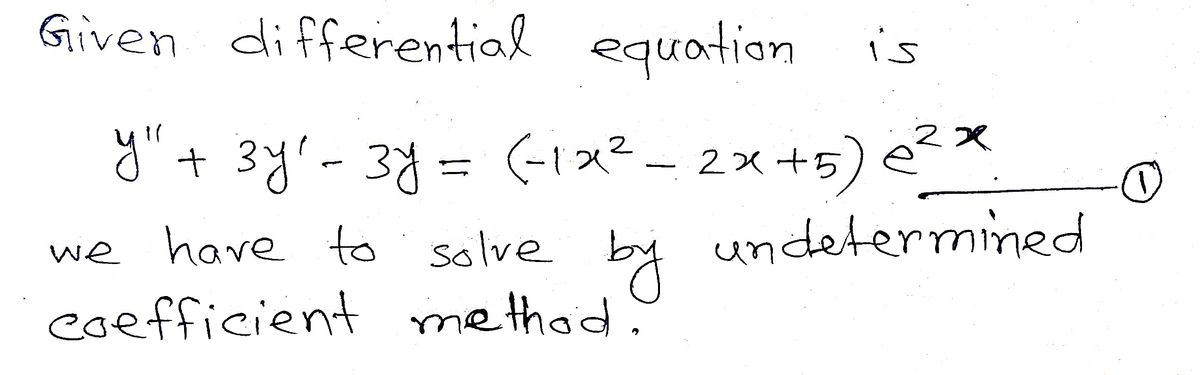 Given differential equation is
y" + 3y' - 3y = (-1x² - 2x +5) e²ˣ ——— ①
we have to solve by undetermined
coefficient method.